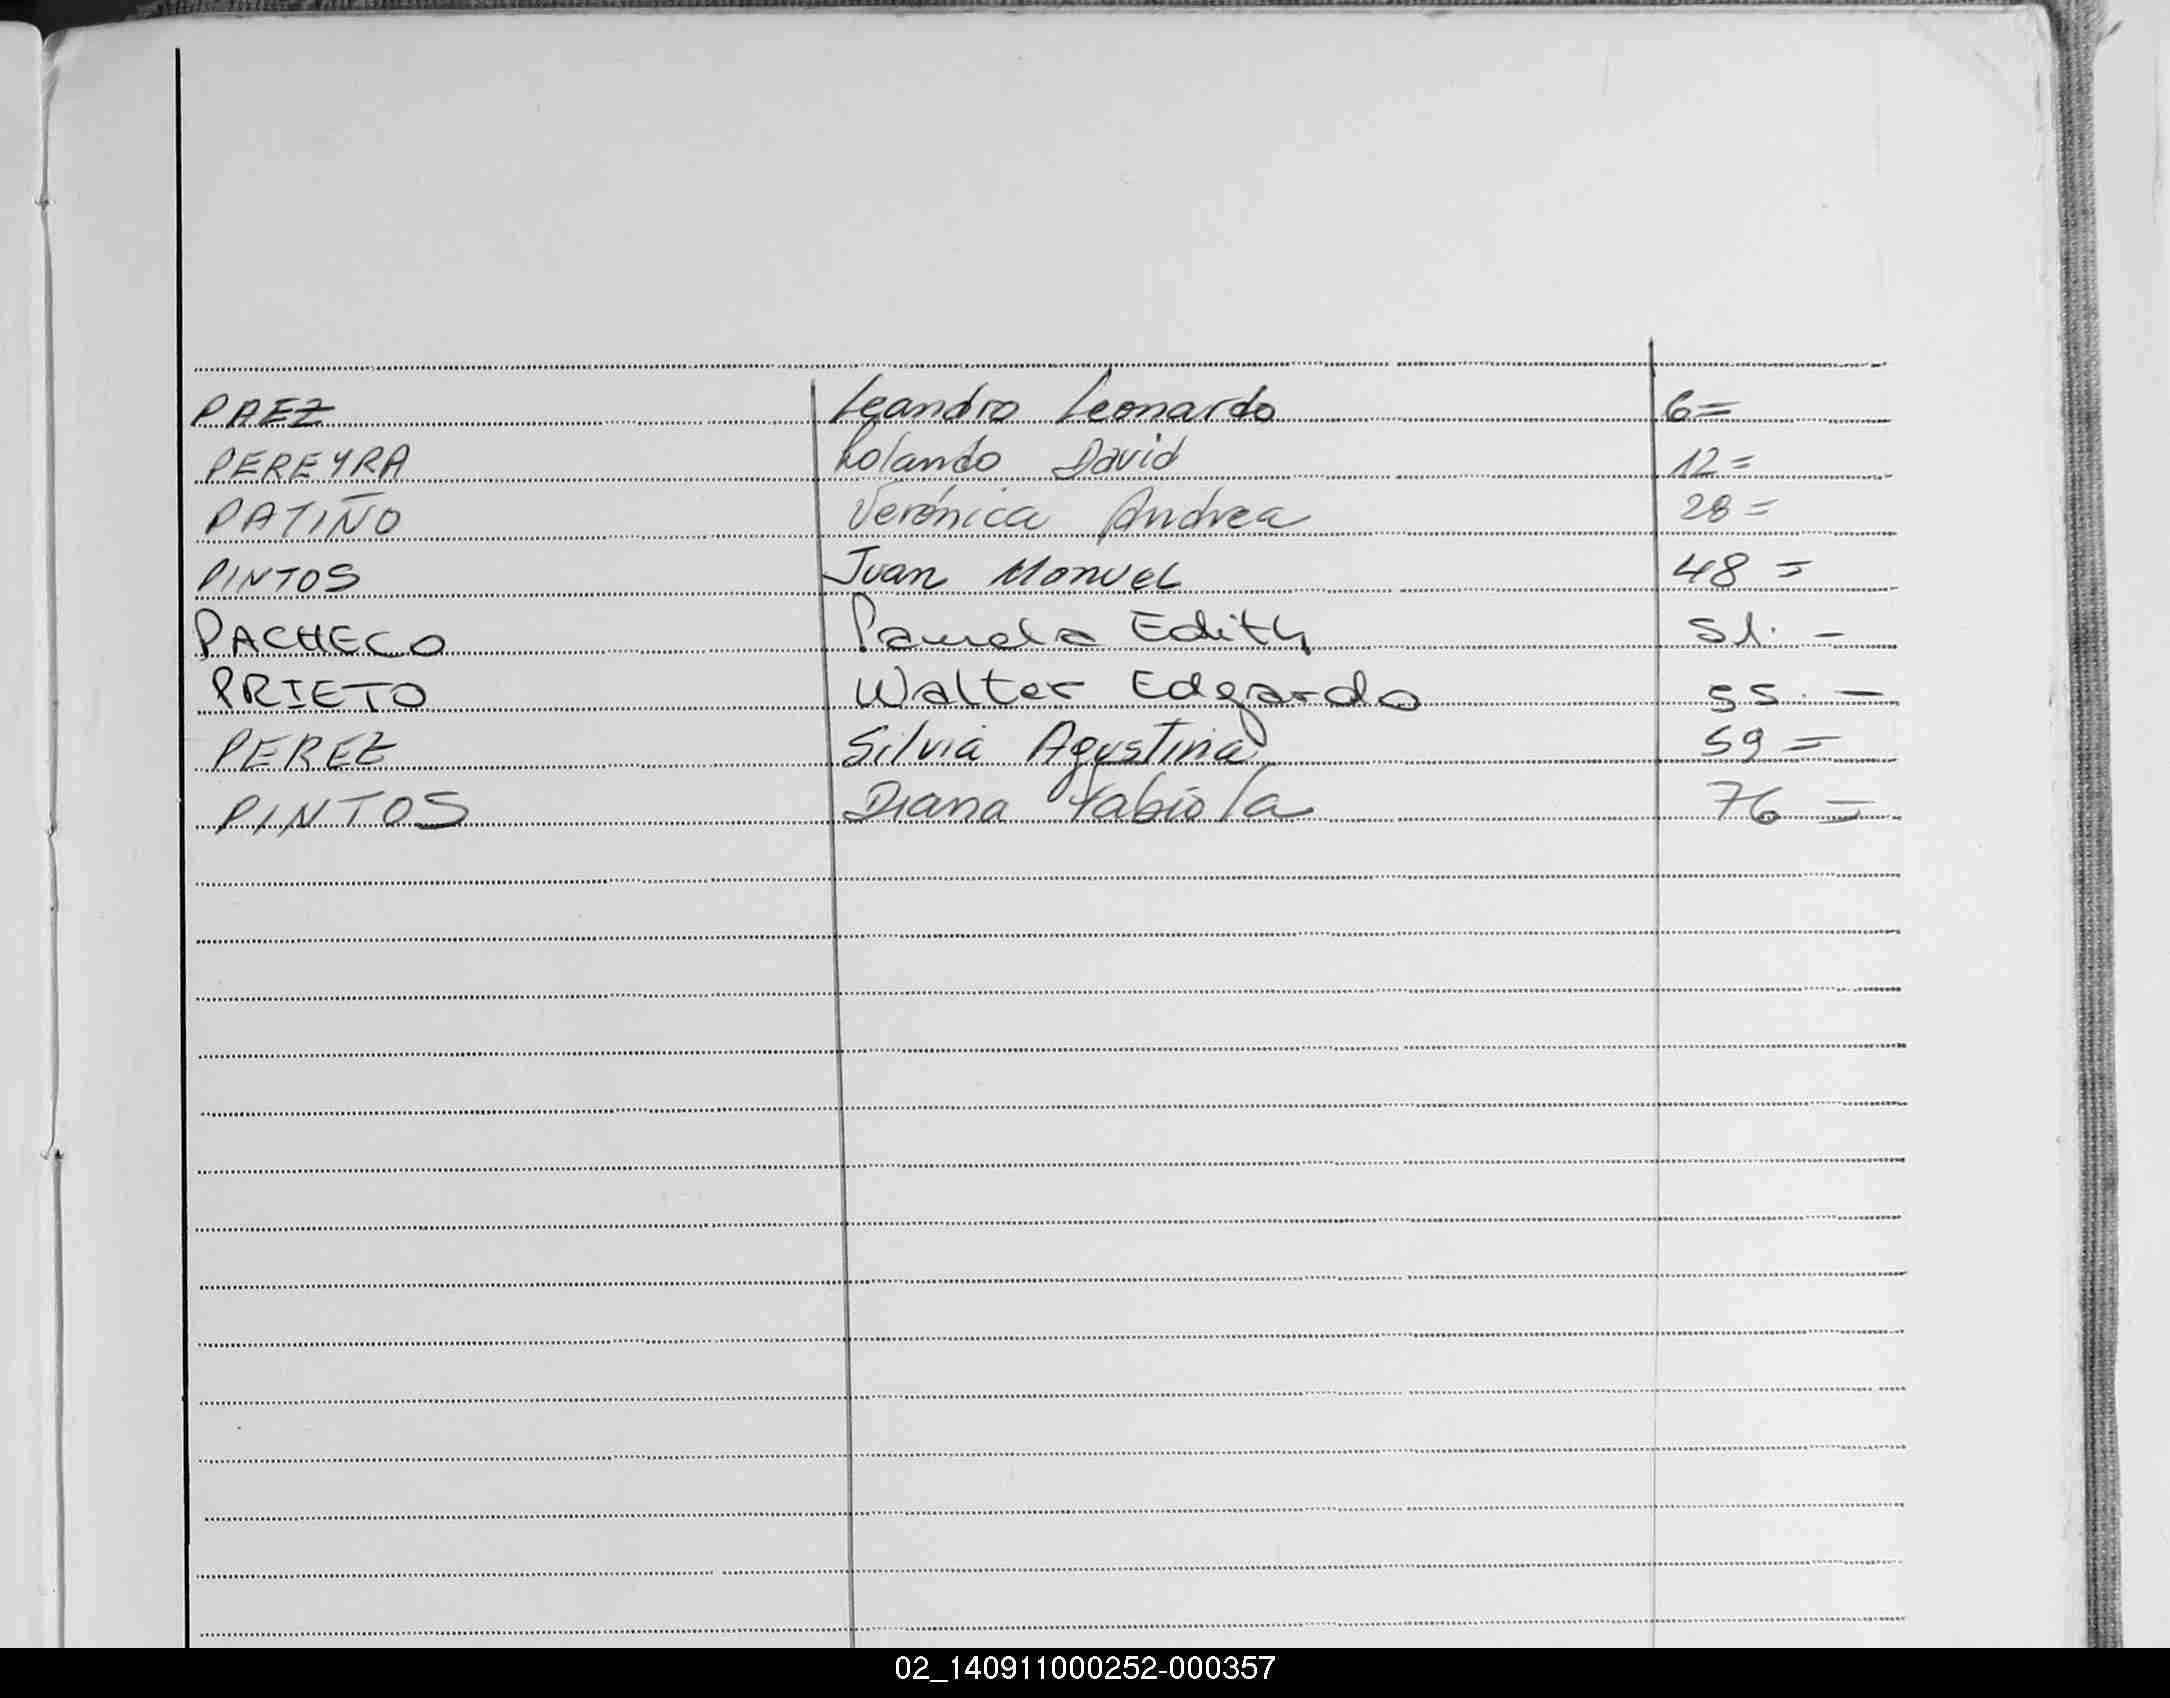 PAEZ Leandro Leonardo 6=
PEREYRA Rolando David 12=
PATIÑO Verónica Andrea 28=
PINTOS Juan Manuel 48=
PACHECO Pamela Edith 51. -
PRIETO Walter Edgardo 55. -
PEREZ Silvia Agustina 59=
PINTOS Diana Fabiola 76=
02_140911000252-000357